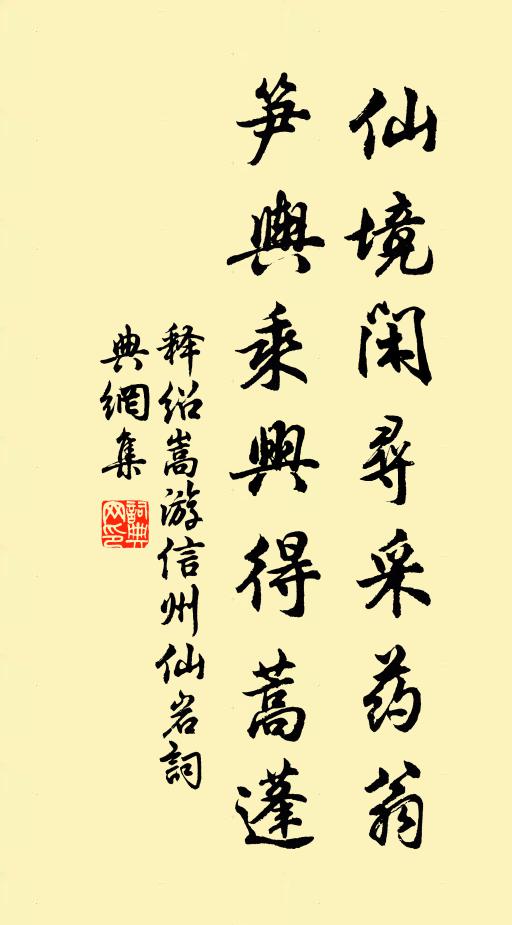 仙境闲寻采药翁
笋舆乘興得蒿蓬
释绍嵩游信州仙岩詞
典網集
詞典网印